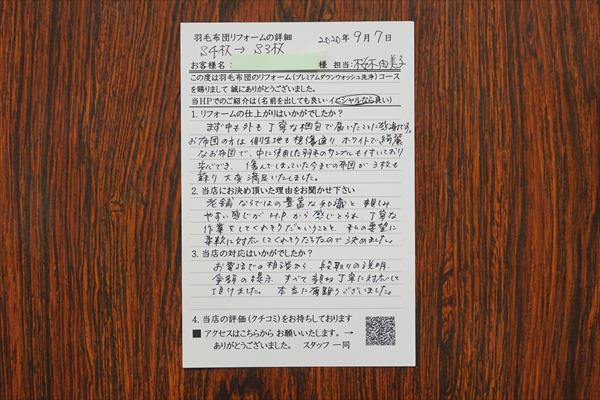 羽毛布団リフォームの詳細 2020年 9月 7日
S4枚→ S3枚
お客様名: 様 担当:桜木由美子
この度は羽毛布団のリフォーム(プレミアムダウンウォッシュ洗浄)コース
を賜りまして 誠にありがとうございました。
当HPでのご紹介は(名前を出しても良い・イニシャルなら良い)
1. リフォームの仕上がりはいかがでしたか?
まず中も外も丁寧な梱包で届いたことに感激です。
お布団の方は側生地も想像通りホワイトで綺麗
なお布団で、中に使用した羽毛のサンプルも付いており
安心でき、傷んでしまっていた今までの布団が3枚も
蘇り大変満足いたしました。
2. 当店にお決め頂いた理由をお聞かせ下さい
老舗ならではの豊富な知識と親しみ
やすい感じがH.Pから感じとられ、丁寧な
作業をしてくれそうだということと、私の要望に
柔軟に対応してくれそうだたので決めました。
3. 当店の対応はいかがでしたか?
お電話での相談から、段取りの説明、
金額の提示、すべて親切丁寧に対応して
頂けました。本当に有難うございました。
4. 当店の評価(クチコミ)をお待ちしております
■ アクセスはこちらから お願いいたします。→
ありがとうございました。 スタッフ一同